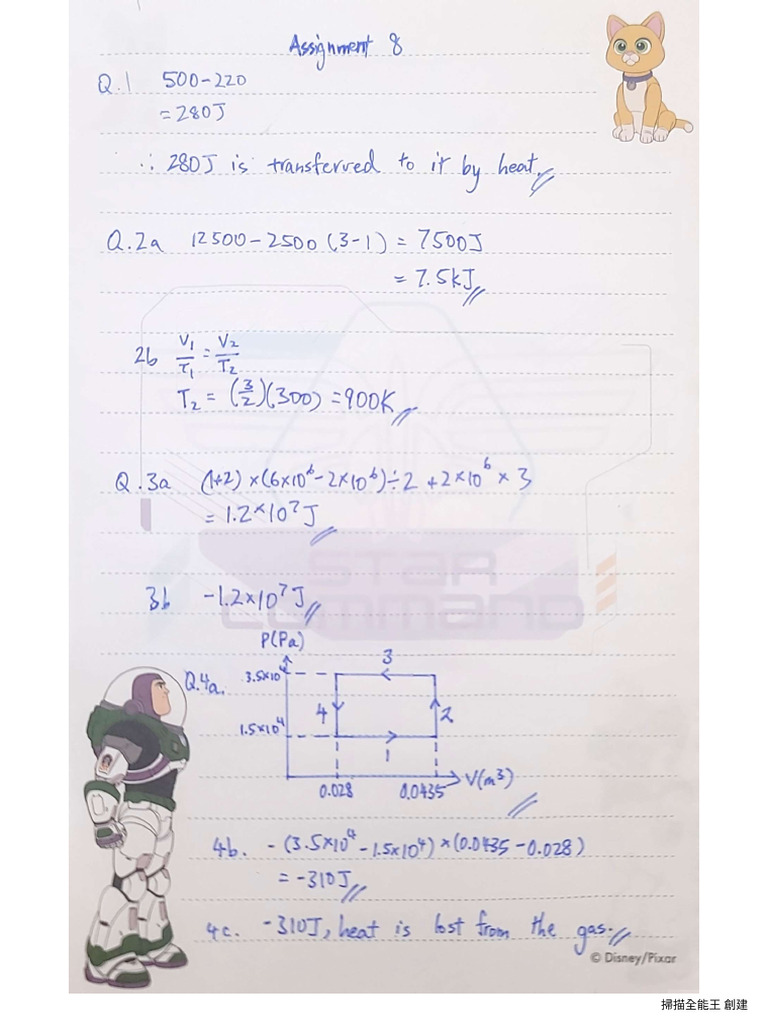 Assignment 8
Q.1 500-220
= 280J
∴ 280J is transferred to it by heat.
Q.2a 12500-2500 (3-1) = 7500J
= 7.5kJ
2b V₁/T₁ = V₂/T₂
T₂ = (3/2)(300) = 900K
Q.3a (1+2) ×(6×10⁶-2×10⁶)÷2 +2×10⁶ × 3
= 1.2×10⁷J
STAR
COMMAND
3b -1.2×10⁷J
P(Pa)
Q.4a.
3
3.5×10⁴
4
2
1.5×10⁴
1
V(m³)
0.028 0.0435
4b. - (3.5×10⁴ - 1.5×10⁴) ×(0.0435 - 0.028)
= -310J
4c. -310J, heat is lost from the gas.
© Disney/Pixar
掃描全能王 創建